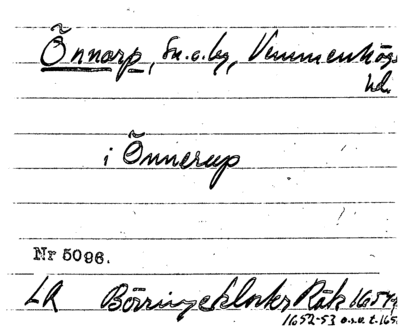 Õnnarp, sn. o. by, Vemmenhögs
hd.
i Õnnerup
Nr 5096.
LR Börringekloster Räk 1654
1652-53 o.s.v. t. 165